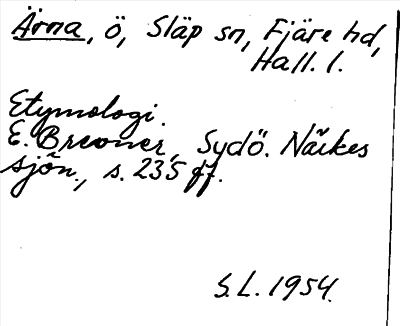 Ärna, ö, Släp sn, Fjäre hd,
Hall. l.
Etymologi.
E. Brevner, Sydö. Närkes
sjön., s. 235 ff.
S.L. 1954.